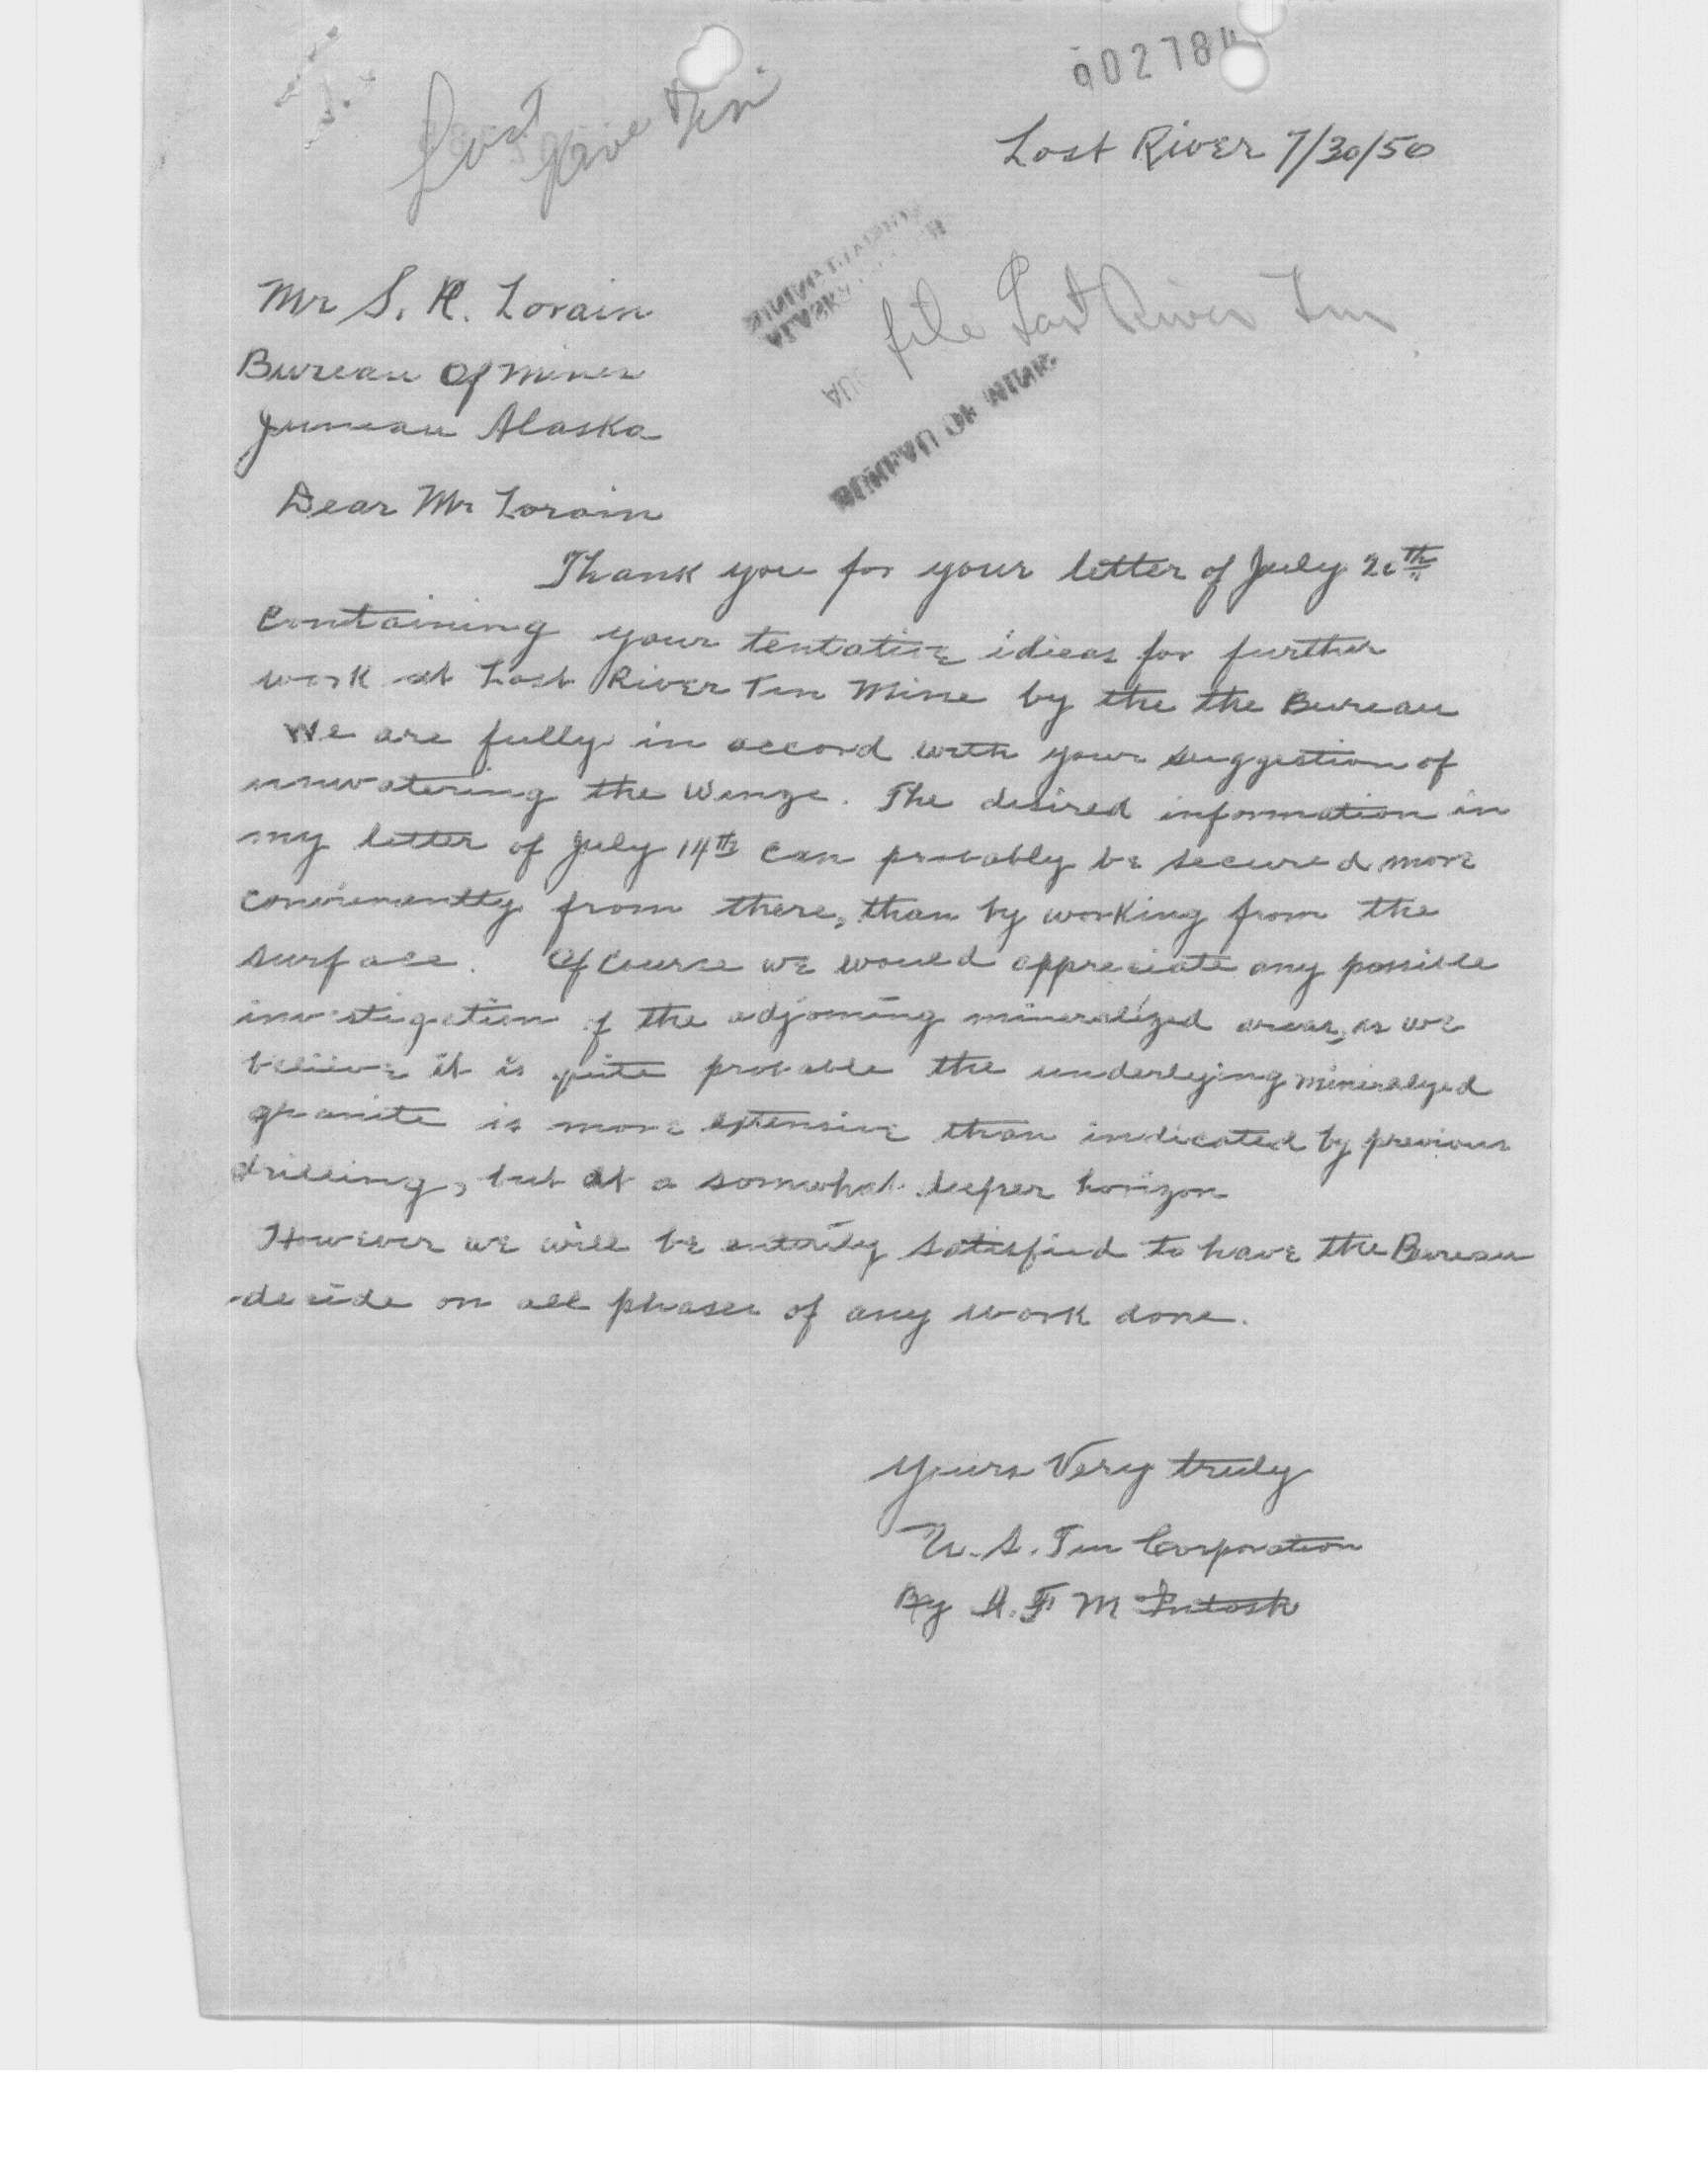 002784
Lost River Tin
Lost River 7/30/50
Mr S. H. Lorain
file Lost River Tin
Bureau Of Mines
Juneau Alaska
BUREAU OF MINES
Dear Mr Lorain
Thank you for your letter of July 20th
containing your tentative idieas for further
work at Lost River Tin Mine by the the Bureau
We are fully in accord with your suggestion of
unwatering the Winze. The desired information in
my letter of July 14th can probably be secured more
conveniently from there, than by working from the
surface. Of Course we would appreciate any possible
investigation of the adjoining mineralized areas, as we
believe it is quite probable the underlying mineralized
granite is more extensive than indicated by previous
drilling, but at a somewhat deeper horizon
However we will be entirely satisfied to have the Bureau
decide on all phases of any work done.
Yours Very truly
U. S. Tin Corporation
By A. F. McIntosh